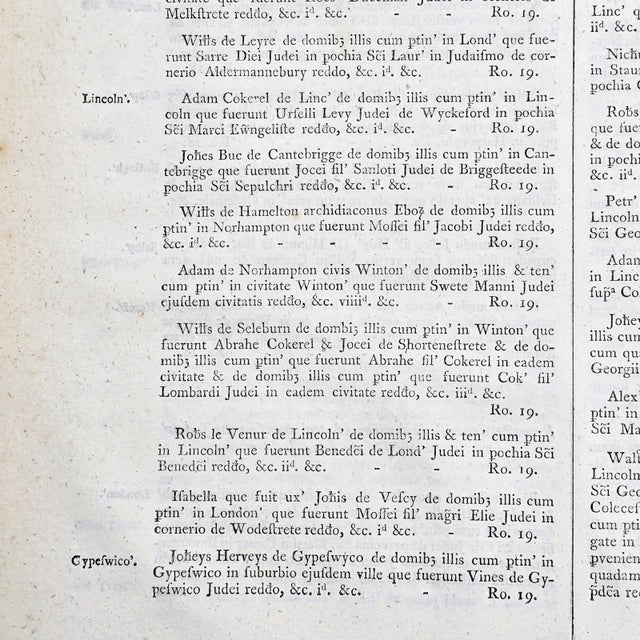 Melkſtrete reddo, &c. iᵈ. &c. - Ro. 19.
Witts de Leyre de domibȝ illis cum ptin' in Lond' que fue-
runt Sarre Diei Judei in pochia Sc̃i Laur' in Judaiſmo de cor-
nerio Aldermannebury reddo, &c. iᵈ. &c. Ro. 19.
Lincoln'. Adam Cokerel de Linc' de domibȝ illis cum ptin' in Lin-
coln que fuerunt Urſelli Levy Judei de Wyckeford in pochia
Sc̃i Marci Ewñgeliſte reddo, &c. iᵈ. &c. - Ro. 19.
Johes Buc de Cantebrigge de domibȝ illis cum ptin' in Can-
tebrigge que fuerunt Jocei fil' Sanloti Judei de Briggeſteede in
pochia Sc̃i Sepulchri reddo, &c. iᵈ. &c. - Ro. 19.
Witts de Hamelton archidiaconus Eboȝ de domibȝ illis cum
ptin' in Norhampton que fuerunt Moſſei fil' Jacobi Judei reddo,
&c. iᵈ. &c. - - - Ro. 19.
Adam de Norhampton civis Winton' de domibȝ illis & ten'
cum ptin' in civitate Winton' que fuerunt Swete Manni Judei
ejuſdem civitatis reddo, &c. viiiᵈ. &c. - Ro. 19.
Witts de Seleburn de dombiȝ illis cum ptin' in Winton' que
fuerunt Abrahe Cokerel & Jocei de Shorteneſtrete & de do-
mibȝ illis cum ptin' que fuerunt Abrahe fil' Cokerel in eadem
civitate & de domibȝ illis cum ptin' que fuerunt Cok' fil'
Lombardi Judei in eadem civitate reddo, &c. iiiᵈ. &c.
Ro. 19.
Robs le Venur de Lincoln' de domibȝ illis & ten' cum ptin'
in Lincoln' que fuerunt Benedc̃i de Lond' Judei in pochia Sc̃i
Benedc̃i reddo, &c. iiᵈ. &c. - - Ro. 19.
Iſabella que fuit ux' Johis de Veſcy de domibȝ illis cum
ptin' in London' que fuerunt Moſſei fil' mag̃ri Elie Judei in
cornerio de Wodeſtrete reddo, &c. iᵈ &c. - Ro. 19.
Gypeſwico'. Joheys Herveys de Gypeſwyco de domibȝ illis cum ptin' in
Gypeſwico in ſuburbio ejuſdem ville que fuerunt Vines de Gy-
peſwico Judei reddo, &c. iᵈ. &c. - Ro. 19.
Linc' q
Nich
in Stau
pochia
Robs
que fue
& de do
in pochi
&c. iiᵈ.
Petr'
Lincoln
Sc̃i Geo
Adam
in Linc
ſup̃ᵃ Co
Johey
illis cum
cum qu
Georgii
Alex'
ptin' in
Sc̃i Ma
Wal
Lincoln
Sc̃i Geo
Coleceſ
cum pti
gate in
pvenien
quadam
p̃dc̃a re